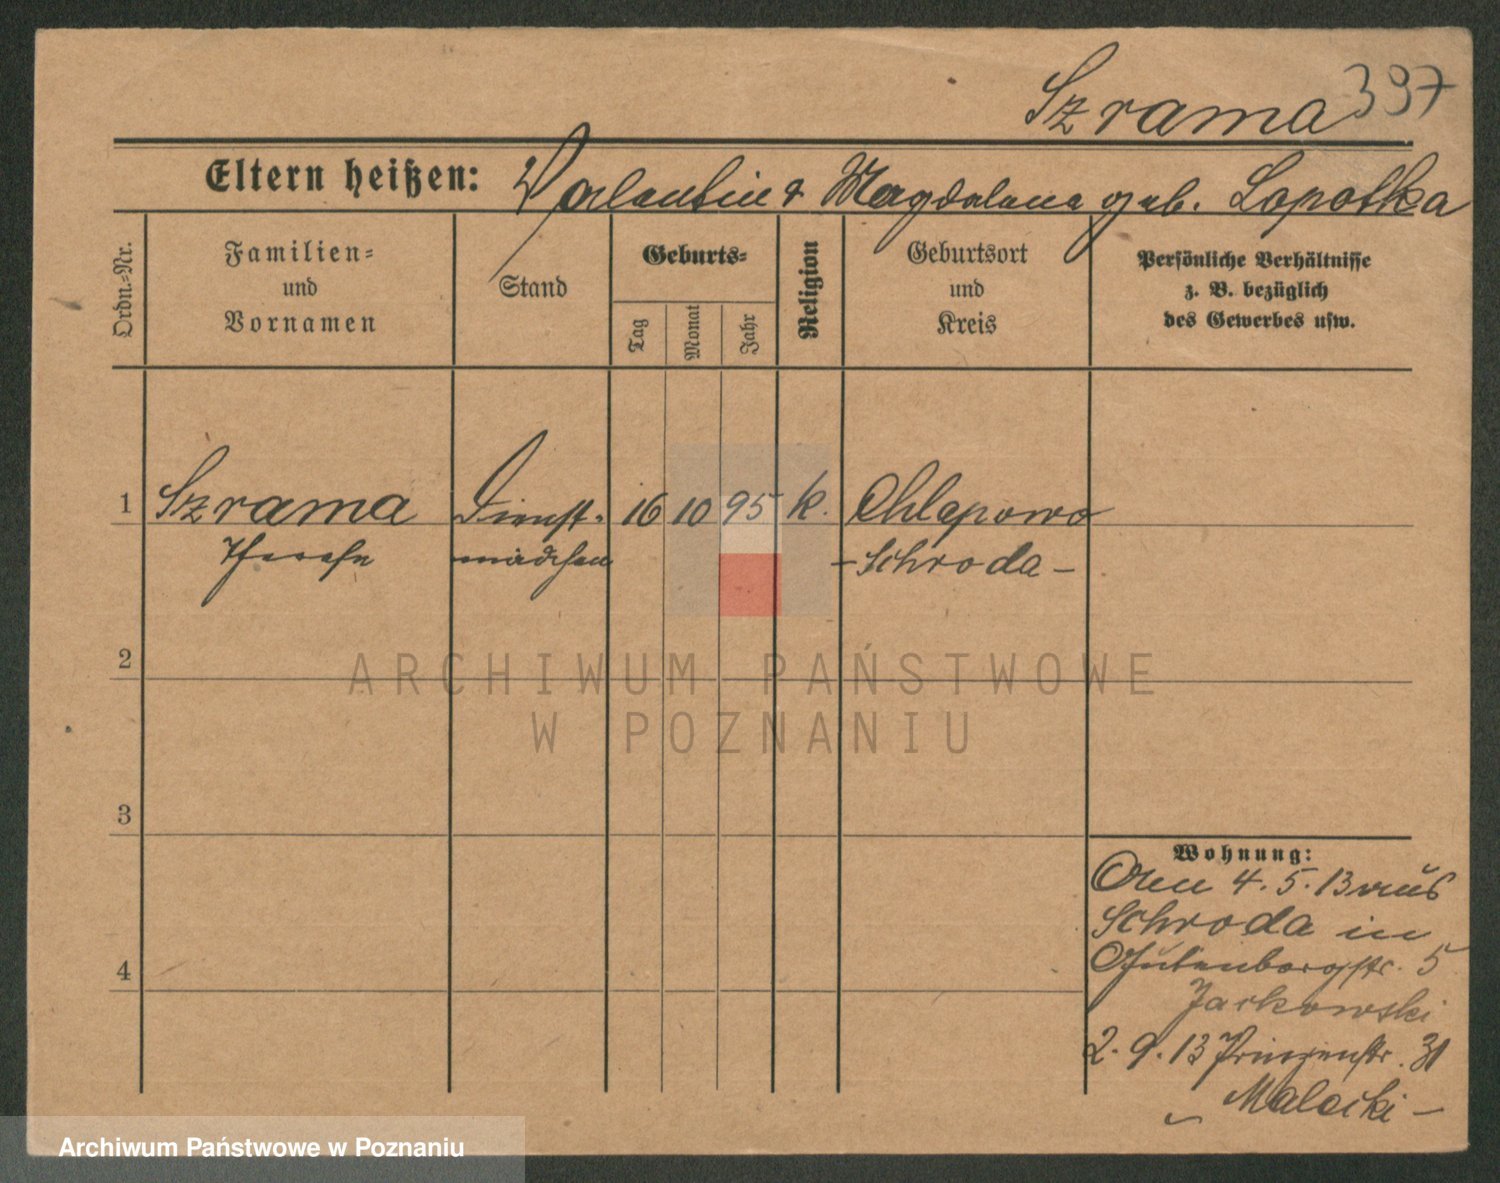 Szrama 397
Eltern heißen: Valentin & Magdalena geb. Lopatka
Ordn.-Nr.
Familien-
und
Vornamen
Stand
Geburts-
Tag
Monat
Jahr
Religion
Geburtsort
und
Kreis
Persönliche Verhältnisse
z. B. bezüglich
des Gewerbes usw.
1 Szrama Dienst- 16 10 95 k. Chlapowo
mädchen - Schroda -
2
3
4
Wohnung:
4.5.13 aus
Schroda in
Gutenbergstr. 5
Jackowski
2.9.13 Prinzenstr. 31
- Malecki -
ARCHIWUM PAŃSTWOWE
W POZNANIU
Archiwum Państwowe w Poznaniu